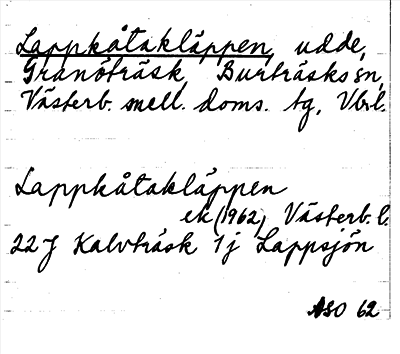 Lappkåtakläppen, udde,
Granöträsk, Burträsks sn,
Västerb. mell. doms. tg, Vb. l.
Lappkåtakläppen
ek (1962) Västerb. l.
22J Kalvträsk 1j Lappsjön
ASO 62